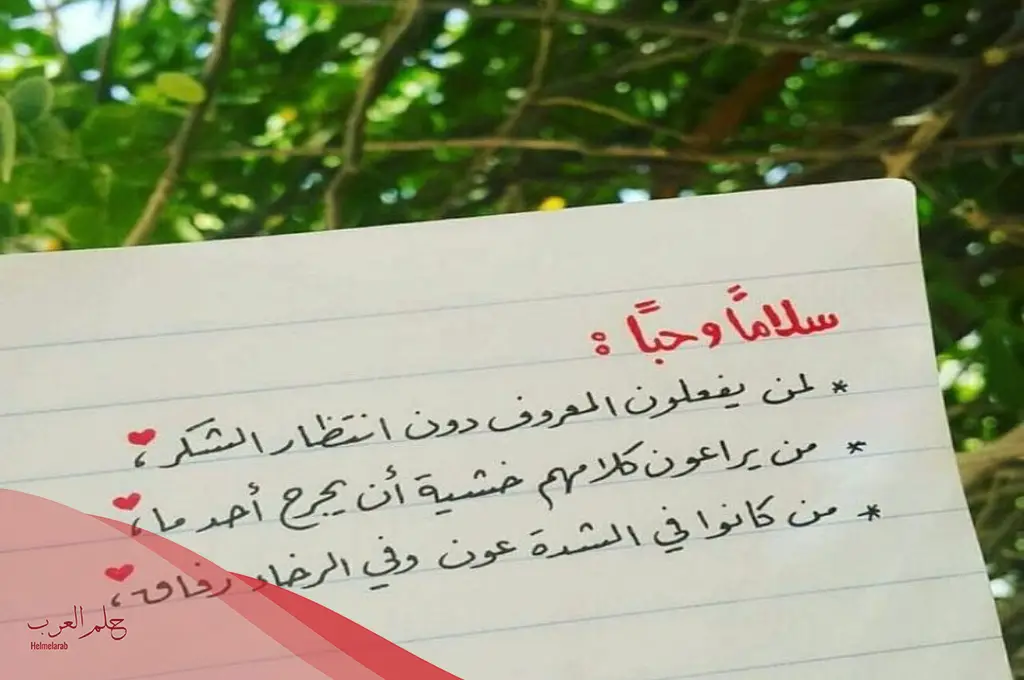 سلامًا وحبًا :
* لمن يفعلون المعروف دون انتظار الشكر ،
* من يراعون كلامهم خشية أن يجرح أحد ما ،
* من كانوا في الشدة عون وفي الرخاء رفاق ،
حلم العرب
Helmelarab